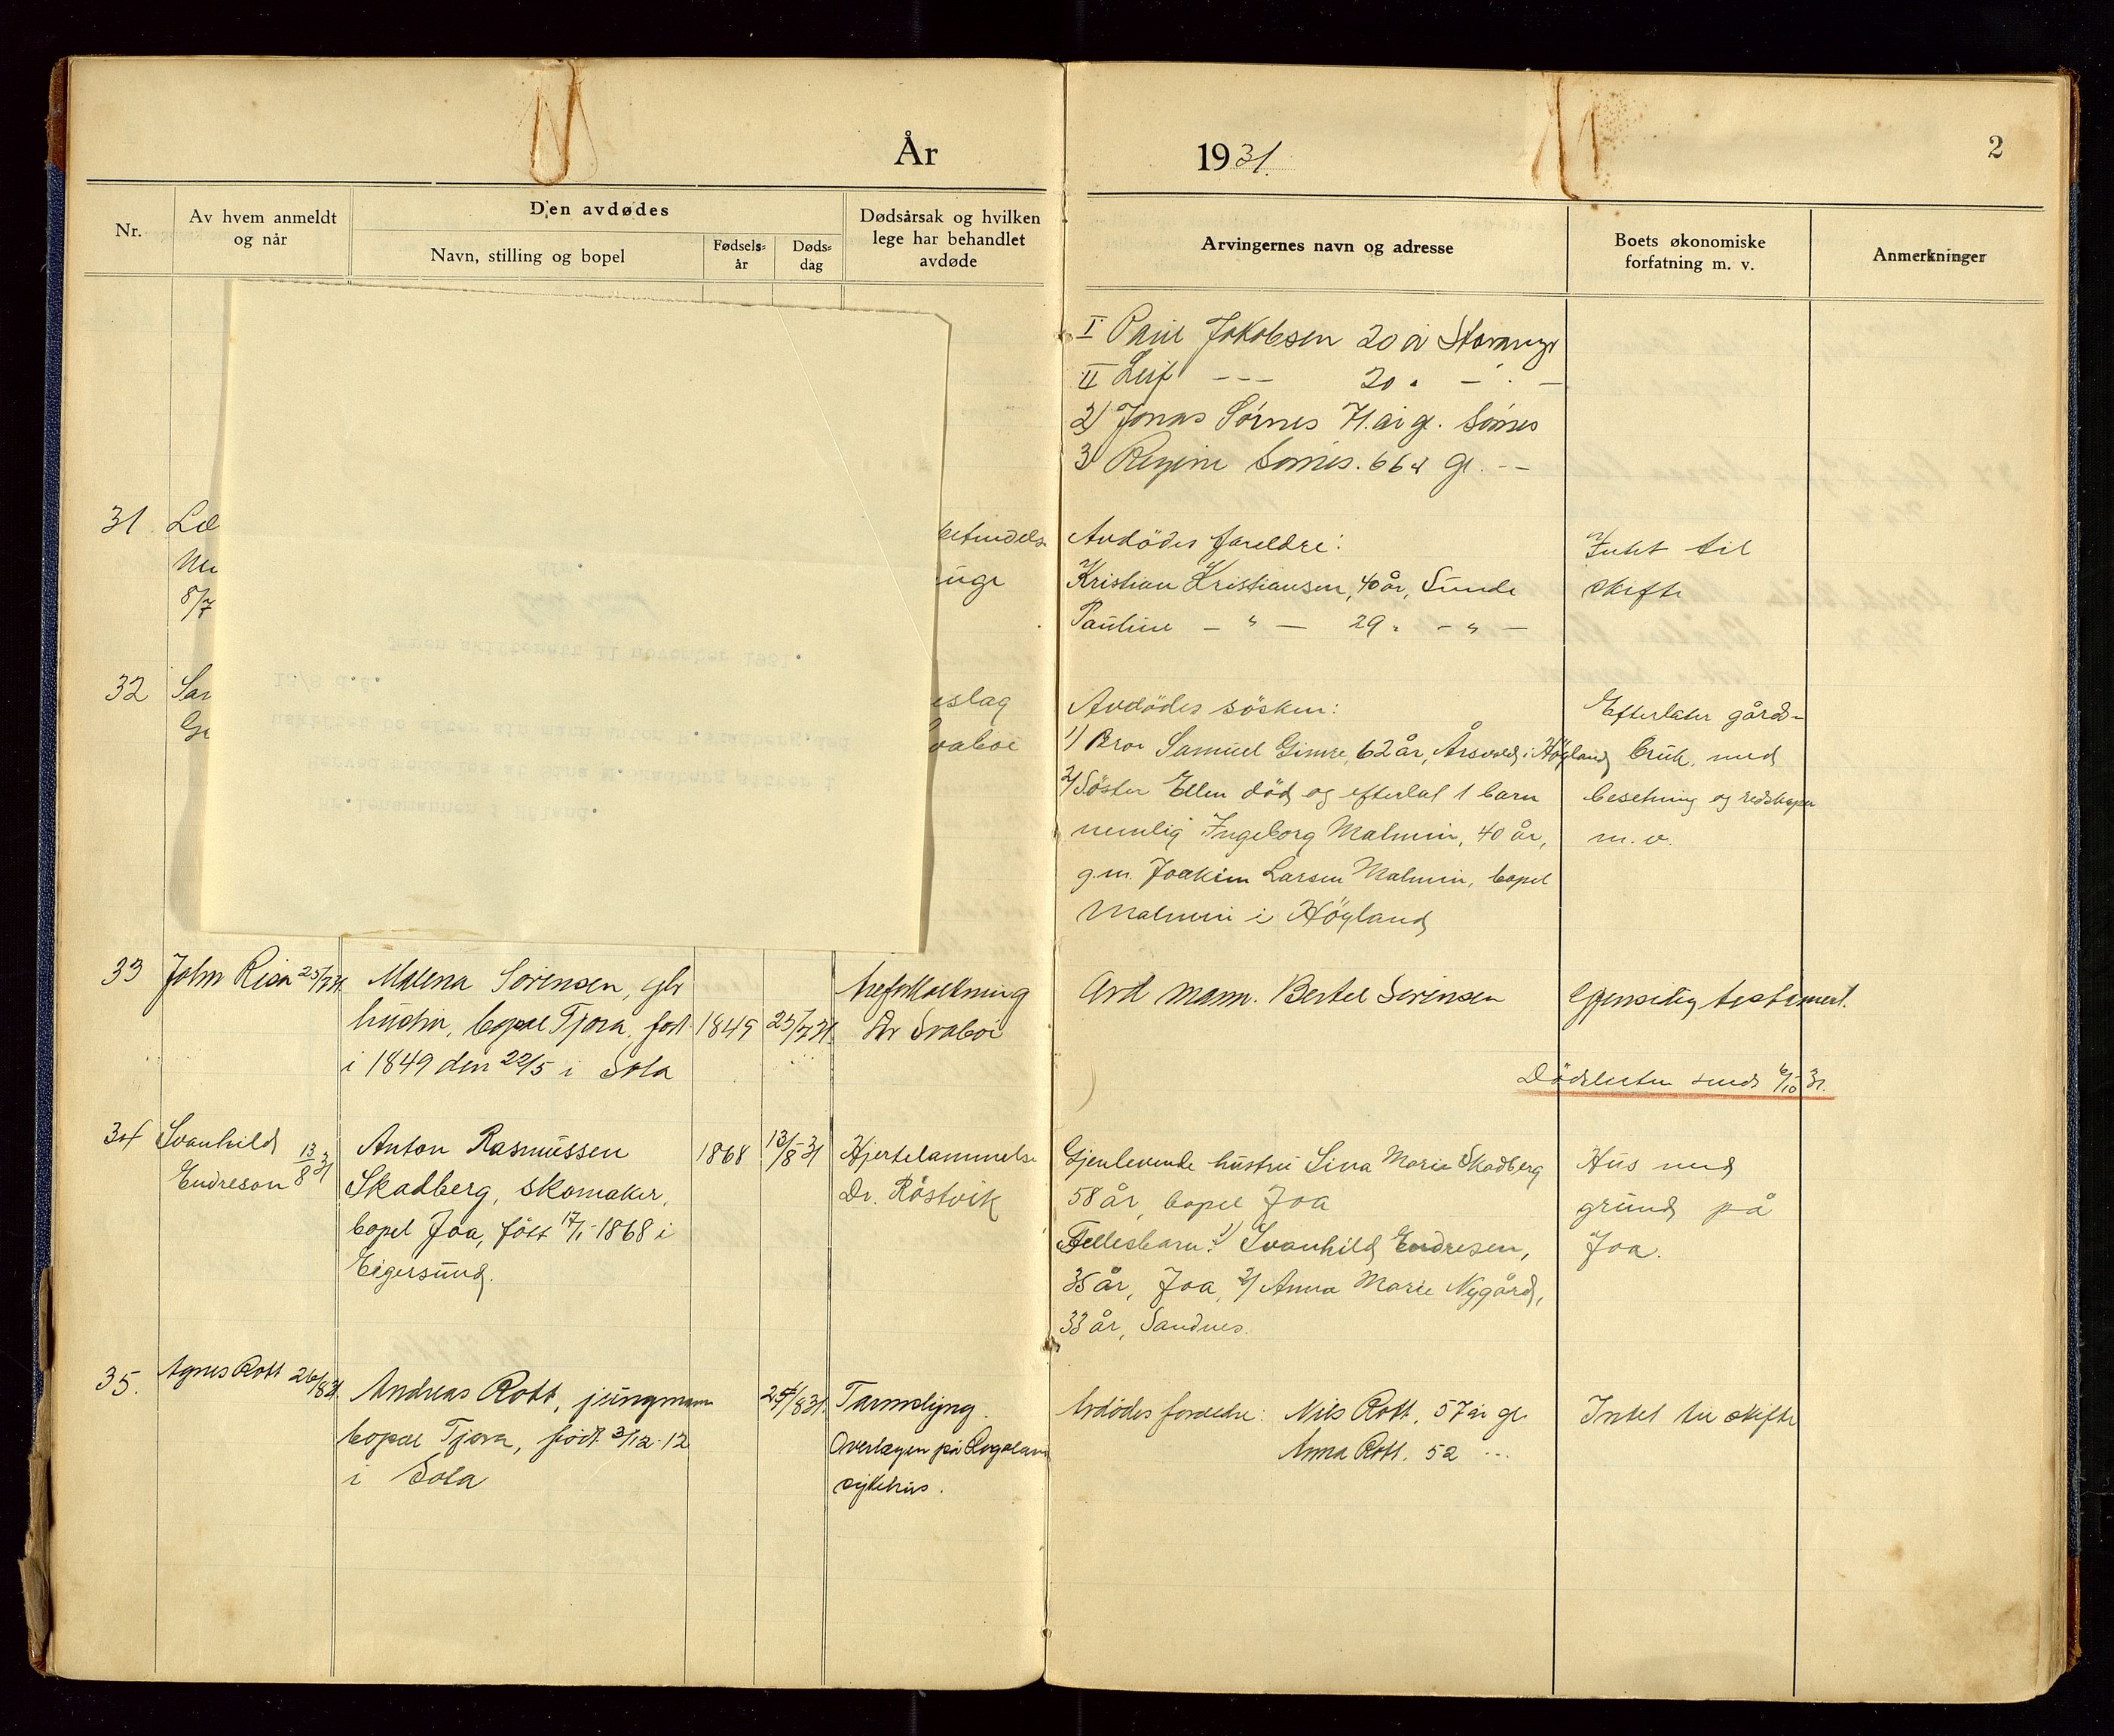 År 1931.
2
Nr.
Av hvem anmeldt
og når
Den avdødes
Navn, stilling og bopel
Fødsels-
år
Døds-
dag
Dødsårsak og hvilken
lege har behandlet
avdøde
Arvingernes navn og adresse
Boets økonomiske
forfatning m. v.
Anmerkninger
I Paul Jakobsen 20 år Stavanger
II Leif - - - 20 " - " -
2) Jonas Sörnes 71 år gl. Sörnes
3) Regine Sörnes. 66 å gl. - -
31
8/7
Avdödes foreldre:
Kristian Kristiansen, 40 år, Sunde
Pauline - " - 29 " - " -
Intet til
skifte
32
eslag
Avdödes sösken:
1) Bror Samuel Gimre, 62 år, Årsvold i Höyland
2) Söster Ellen död og efterlat 1 barn
nemlig Ingeborg Malmin, 40 år,
g.m. Joakim Larsen Malmin, bopel
Malmin i Höyland
Efterlater gårds-
bruk, med
besetning og redskaper
m. v.
33 John Risa 25/7 31
Malena Sörensen, gbr
hustru, bopel Tjora, født
i 1849 den 22/5 i Sola
1849
25/7 31.
Åreforkalkning
Dr Svaboe
Arv. mann. Bertel Sörensen
Gjensidig testament.
Dödslisten sendt 6/10 31.
34 Svanhild
Endresen 13/8 31
Anton Rasmussen
Skadberg, skomaker,
bopel Joa, född 17/1-1868 i
Eigersund.
1868
13/8 31
Hjertelammelse
Dr. Röstvik
Gjenlevende hustru Sina Marie Skadberg
58 år, bopel Joa
Fellesbarn: 1) Svanhild Endresen,
35 år, Joa, 2) Anna Marie Nygård,
33 år, Sandnes.
Hus med
grund på
Joa.
35. Agnes Rott 26/8 31.
Andreas Rott, jungmann
bopel Tjora, født 3/12-12
i Sola
/8 31.
Tarmslyng.
Overlægen på Rogaland
sykehus.
Avdödes foreldre: Nils Rott, 57 år gl.
Anna Rott. 52 - - -
Intet til skifte